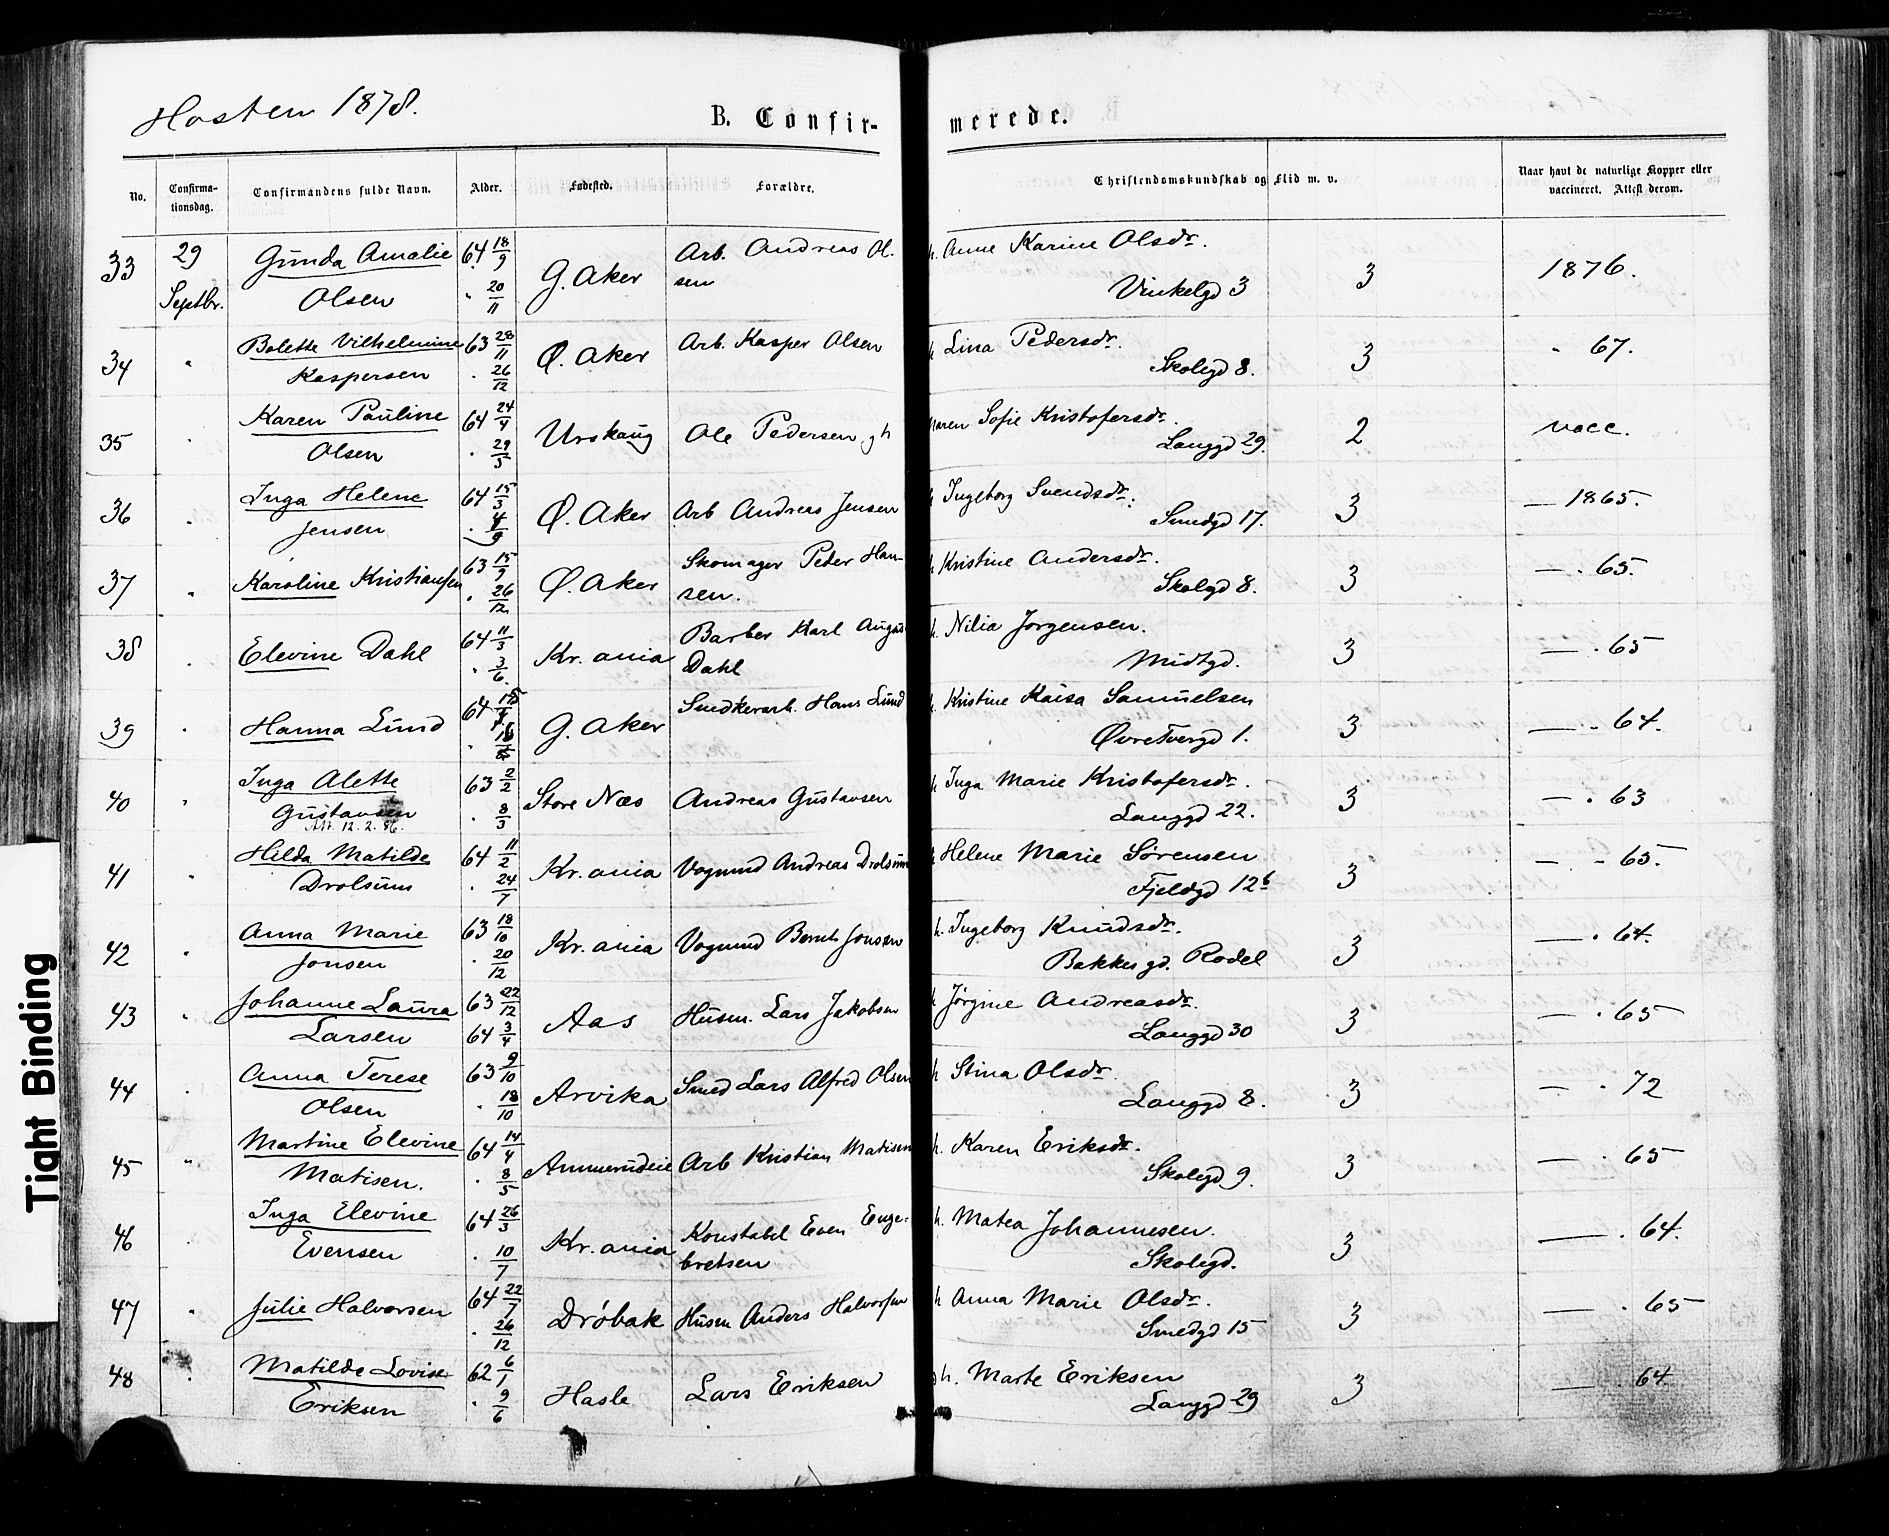 Høsten 1878.
B. Confirmerede.
No. Confirmationsdag. Confirmandens fulde Navn. Alder. Fødested. Forældre. Christendomskundskab og Flid m. v. Naar havt de naturlige Kopper eller vaccineret. Attest derom.
33 29 Septbr. Gunda Amalie Olsen 64 18/9 " 20/11 G. Aker Arb. Andreas Olsen h. Anne Karine Olsdr. Vinkelgd 3 3 1876.
34 " Bolette Vilhelmine Kaspersen 63 28/11 " 26/12 Ø. Aker Arb. Kasper Olsen h Lina Pedersdr. Skolegd 8. 3 " 67.
35 Karen Pauline Olsen 64 24/4 " 29/5 Urskaug Ole Pedersen gh Maren Sofie Kristofersdr. Langgd 29. 2 vacc.
36 " Inga Helene Jensen 64 15/3 " 4/9 Ø. Aker Arb Andreas Jensen h Ingeborg Svendsdr. Smedgd 17. 3 — 1865.
37 " Karoline Kristiansen 63 15/9 " 26/12 Ø. Aker Skomager Peder Hansen. h Kristine Andersdr. Skolgd 8. 3 — " 65.
38 " Elevine Dahl 64 11/3 " 3/6 Kr. ania Barber Karl August Dahl h. Nilia Jørgensen. Midtgd. 3 — " 65
39 " Hanna Lund 64 G. Aker Snedkerarb. Hans Lund h. Kristine Kaisa Samuelsen Øvre Tvergd 1. 3 — " 64.
40 " Inga Alette Gustavsen 63 2/2 " 8/3 Store Næs Andreas Gustavsen h Inga Marie Kristofersdr. Langgd 22. 3 — " 63
Att. 12. 2. 86.
41 " Hilda Matilde Drolsum 64 11/2 " 24/7 Kr. ania Vognmd Andreas Drolsum h Helene Marie Sørensen Fjeldgd 12b 3 — " 65.
42 " Anna Marie Jonsen 63 18/10 " 20/12 Kr. ania Vognmd Bernt Jonsen h. Ingeborg Knudsdr. Bakkesgd. Rodel 3 — " 64.
43 " Johanne Laura Larsen 63 22/12 64 3/4 Aas Husm. Lars Jakobsen h Jørgine Andreasdr. Langgd 30 3 — " 65
44 " Anna Terese Olsen 63 9/10 " 18/10 Arvika Smed Lars Alfred Olsen h Stina Olsdr. Langgd 8. 3 — " 72
45 " Martine Elevine Matisen. 64 14/4 " 8/5 Ammerudeie Arb Kristian Matisen h. Karen Eriksdr. Skolegd 9. 3 — " 65
46 " Inga Elevine Evensen 64 26/3 " 10/7 Kr. ania Konstabel Even Engebretsen h. Matea Johannesen. Skolegd. 3 — " 64.
47 " Julie Halvorsen 64 22/7 " 26/12 Drøbak Husm Anders Halvorsen h Anna Marie Olsdr. Smedgd 15 3 — " 65
48 " Matilde Lovise Eriksen 62 6/1 " 9/6 Hasle Lars Eriksen gh. Marte Eriksen Langgd 29 3 — " 64
Tight Binding